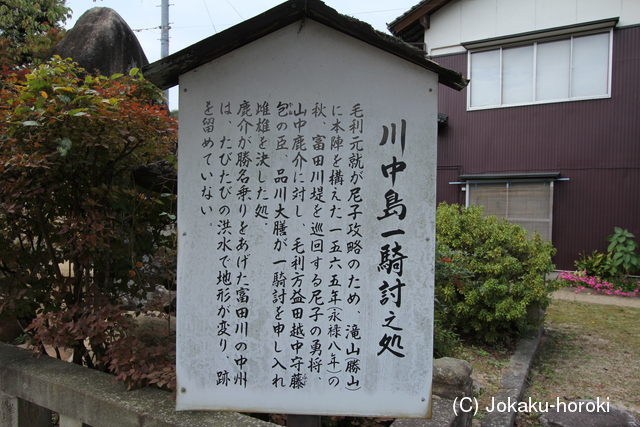 川中島一騎討之処
毛利元就が尼子攻略のため、滝山(勝山)
に本陣を構えた一五六五年(永禄八年)の
秋、富田川堤を巡回する尼子の勇将、
山中鹿介に対し、毛利方益田越中守藤
包の臣、品川大膳が一騎討を申し入れ
雌雄を決した処。
鹿介が勝名乗りをあげた富田川の中州
は、たびたびの洪水で地形が変り、跡
を留めていない。
(C) Jokaku-horoki